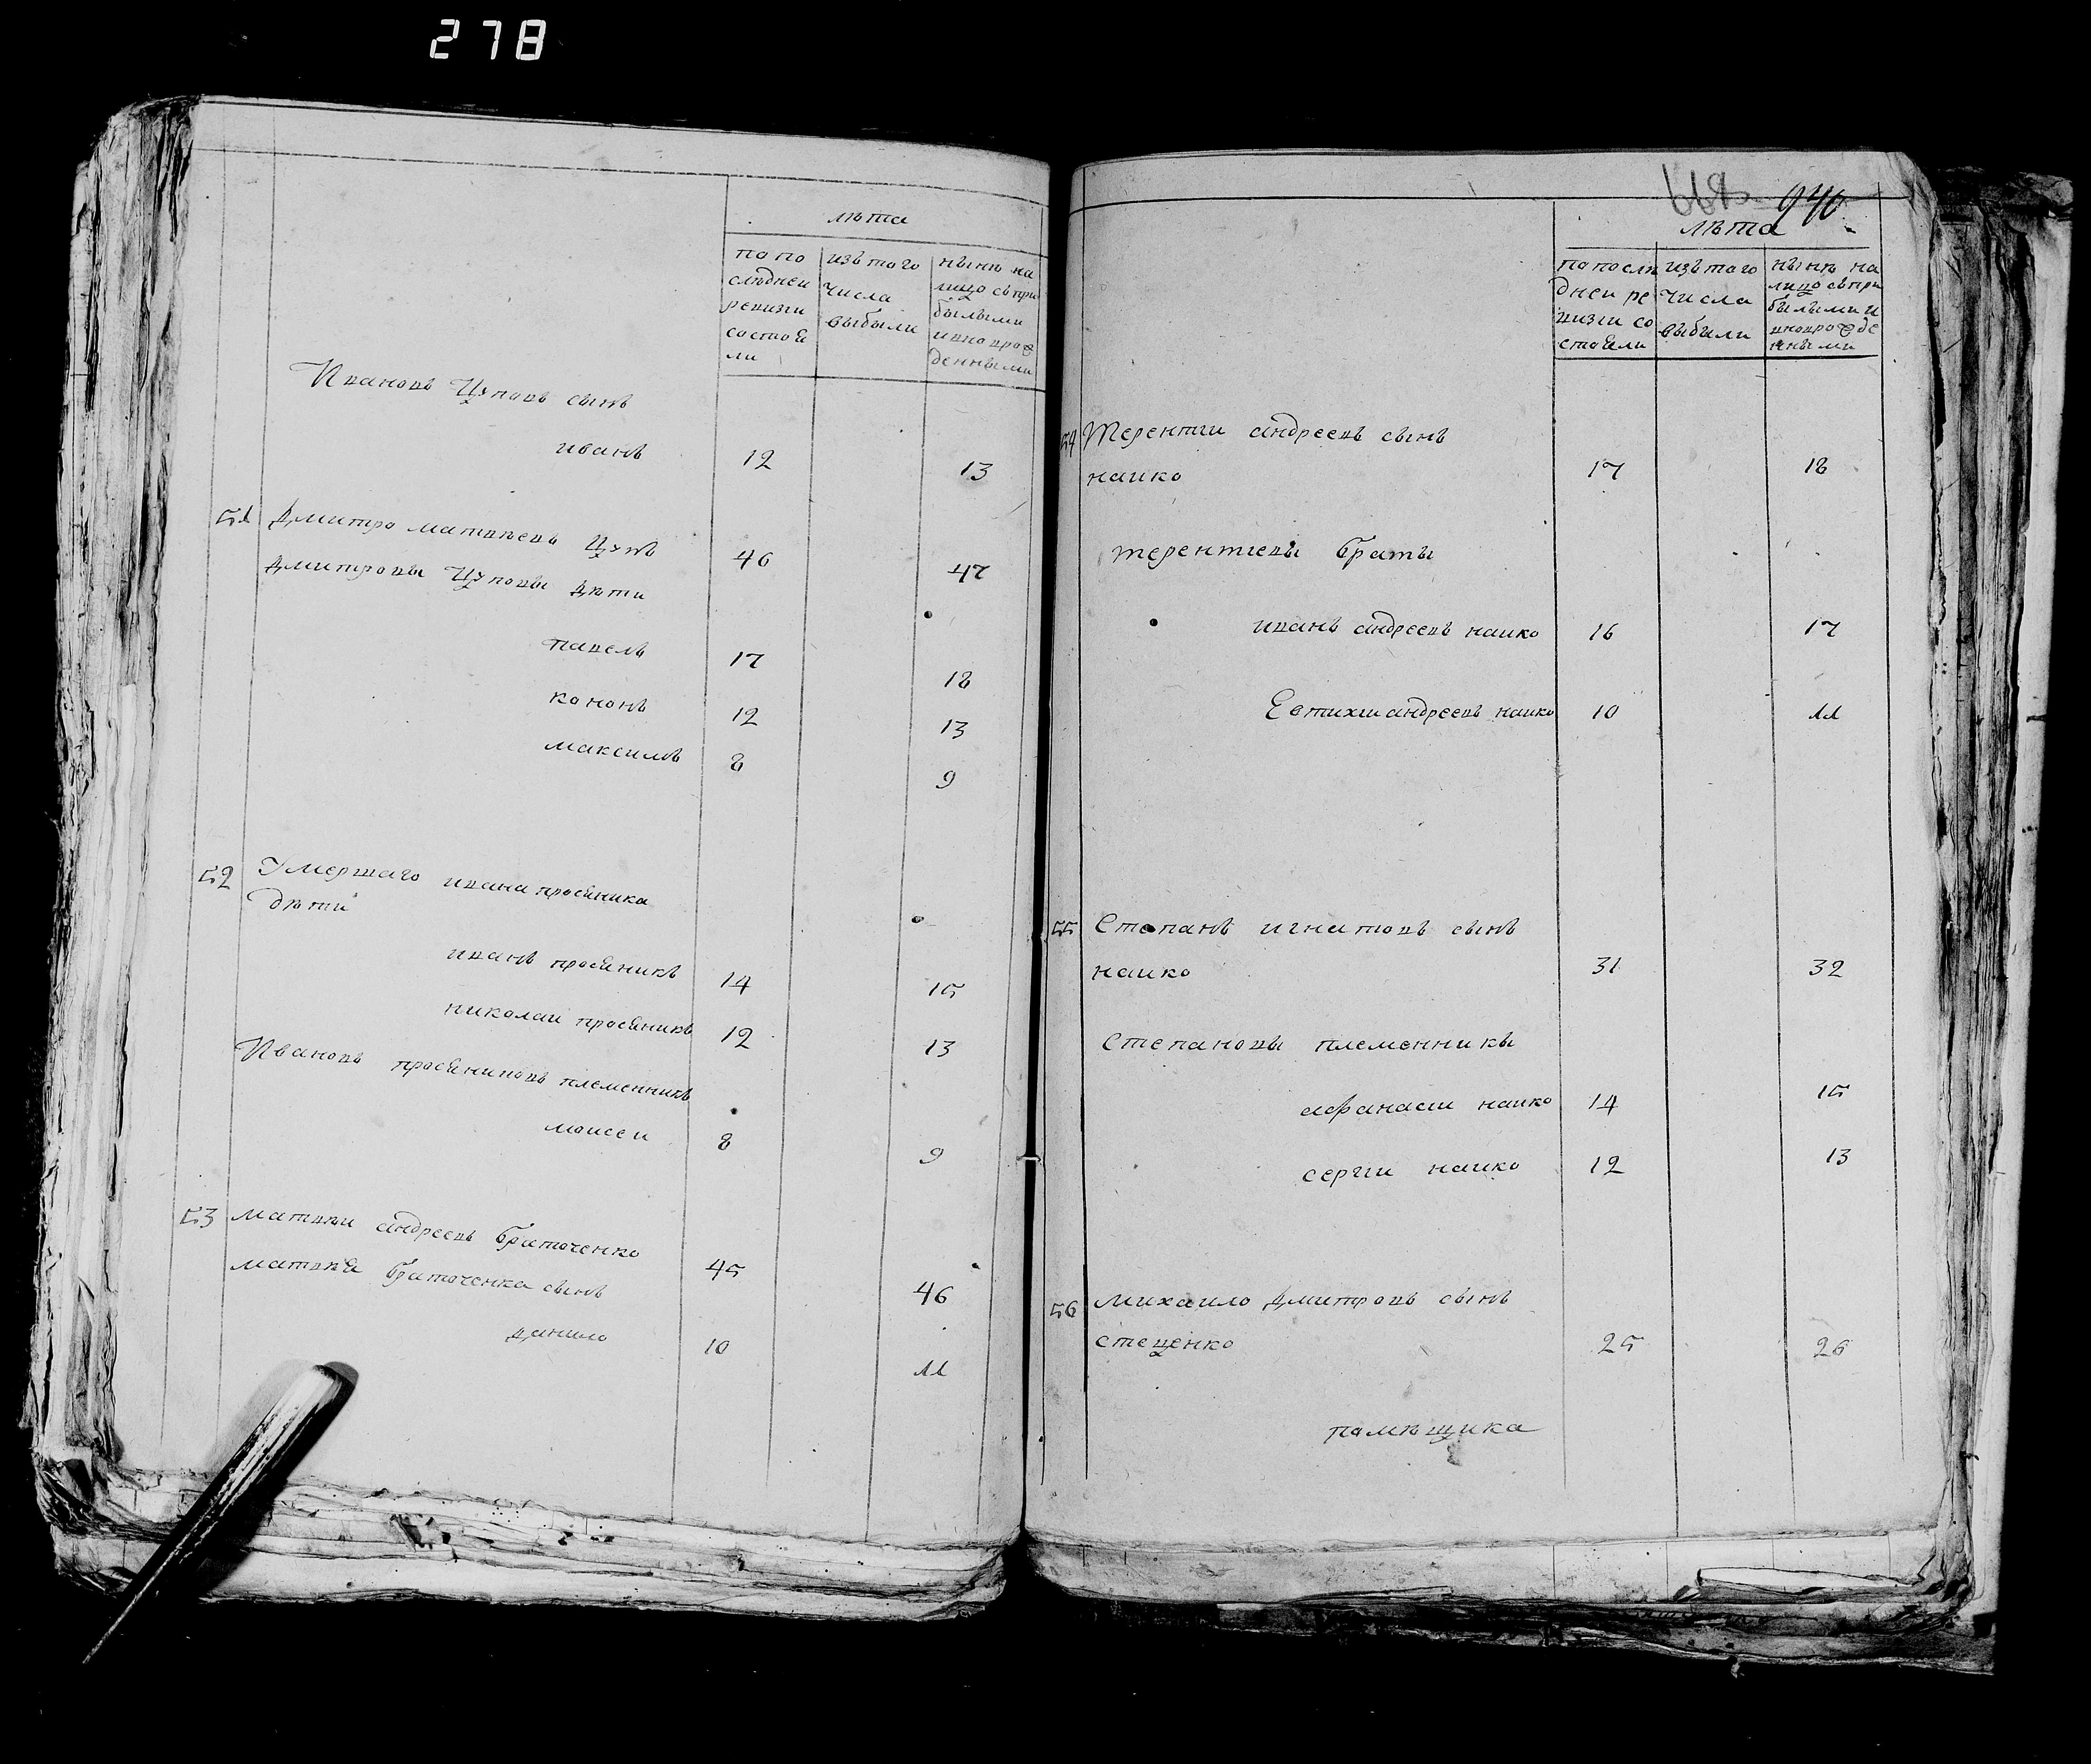 278
лѣта
по по
слѣдней
ревизіи
состоя
ли
изъ того
числа
выбыли
нынѣ на
лицо съ при
былыми
и новорож
денными
Ивановъ Цуповъ сынъ
иванъ 12 13
51 Дмитро матвѣевъ Цупъ 46 47
Дмитровы Цуповы дѣти
павелъ 17 18
кононъ 12 13
максимъ 8 9
52 Умершаго ивана просяника
дѣти
иванъ просяникъ 14 15
николаи просяникъ 12 13
Ивановъ просяниковъ племенникъ
моисеи 8 9
53 матвѣи андреевъ браточенко 45 46
матвѣя браточенка сынъ
данило 10 11
940
лѣта
по послѣ
дней ре
визіи со
стояли
изъ того
числа
выбыли
нынѣ на
лицо съ при
былыми и
новорожде
нными
54 Терентіи андреевъ сынъ
наико 17 18
терентіевы браты
иванъ андреевъ наико 16 17
Евтихіи андреевъ наико 10 11
55 Степанъ игнатовъ сынъ
наико 31 32
степановы племенники
афанасіи наико 14 15
сергіи наико 12 13
56 михаило дмитровъ сынъ
стеценко 25 26
помѣщика